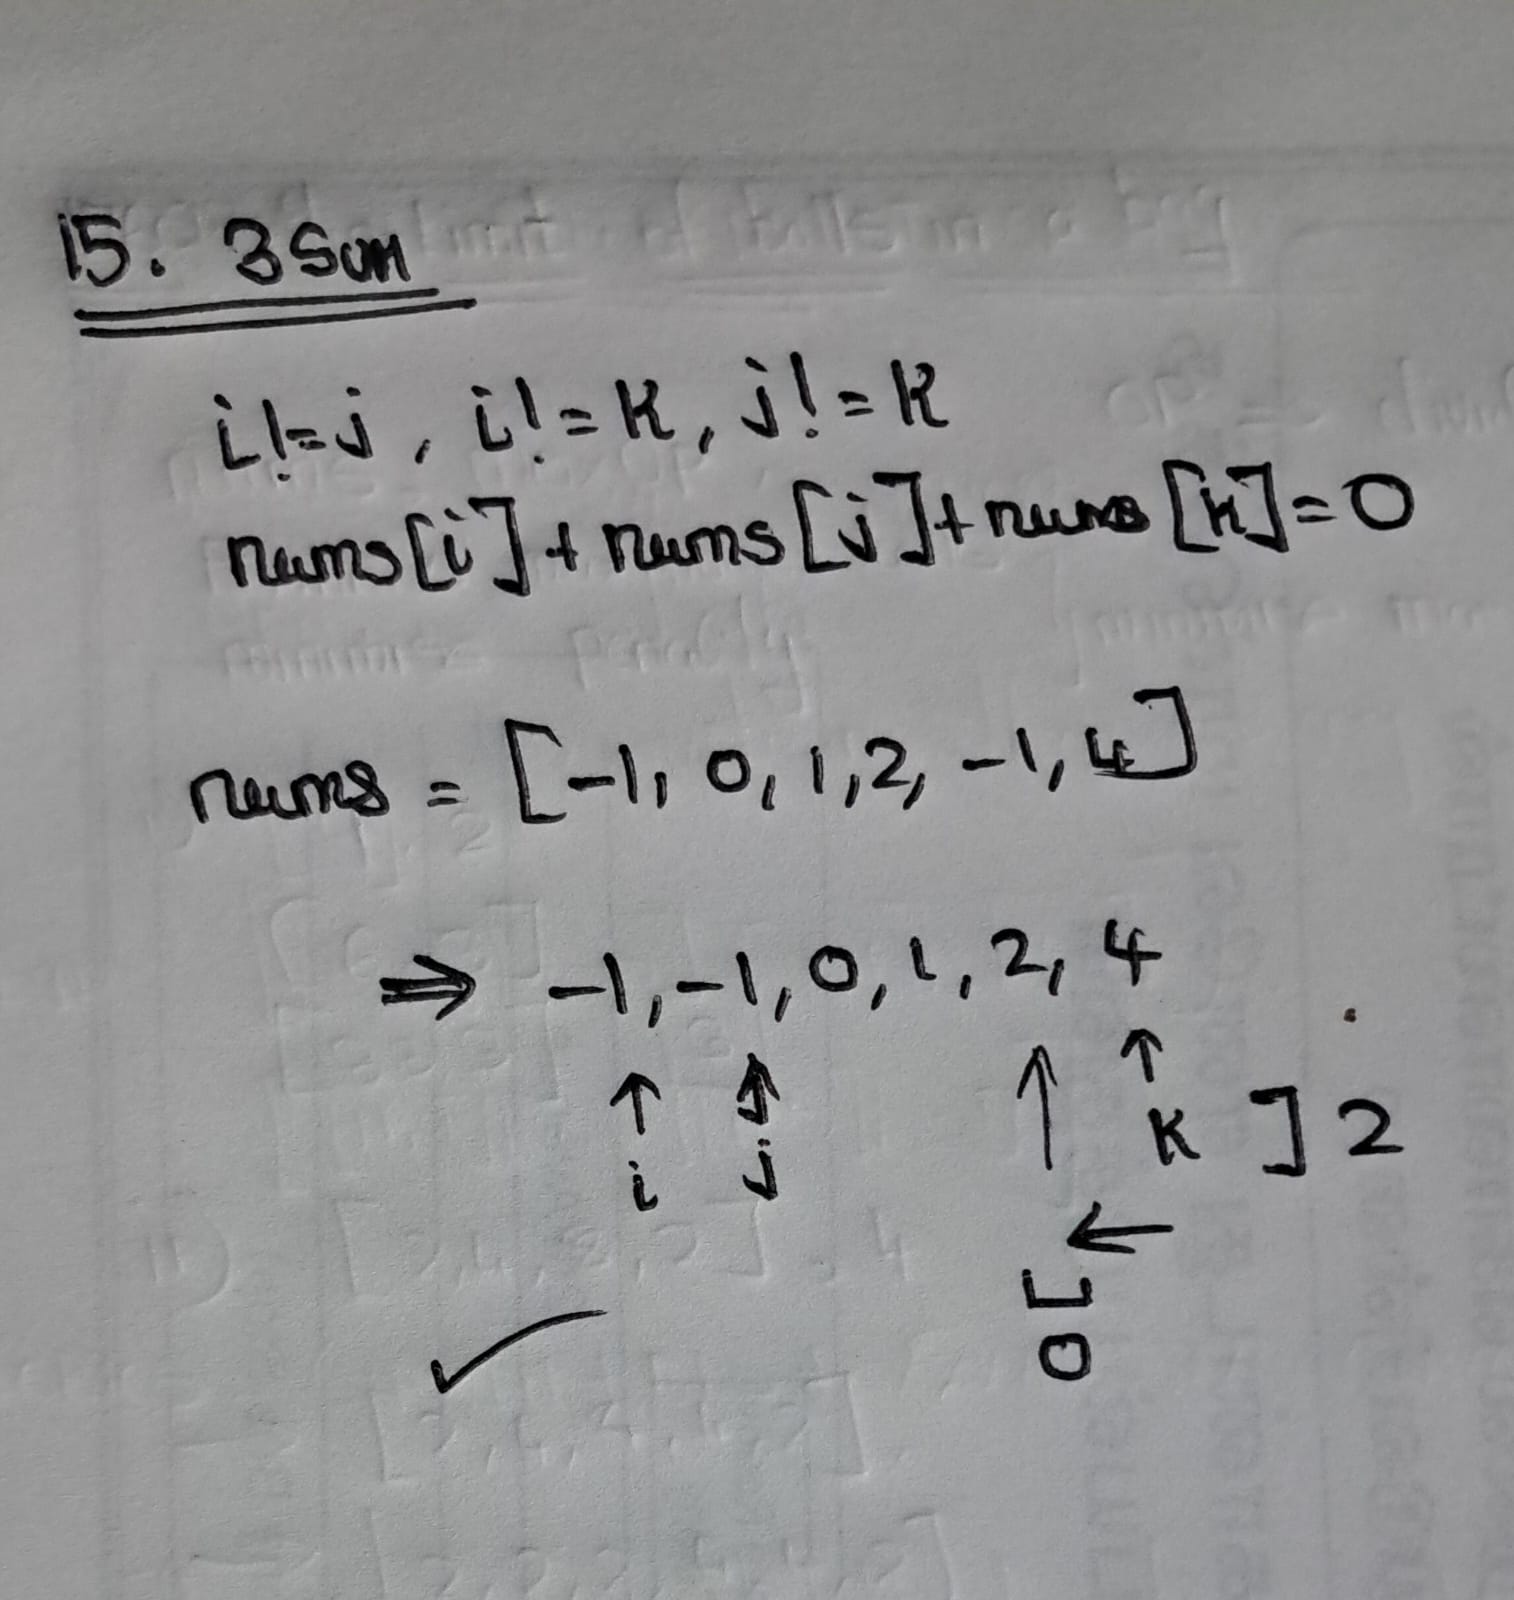 15. 3Sum
i!=j, i!=k, j!=k
nums[i]+nums[j]+nums[k]=0
nums = [-1, 0, 1, 2, -1, 4]
⇒ -1, -1, 0, 1, 2, 4
↑ ↑ ↑ ↑
i j k ] 2
←
]
0
✓